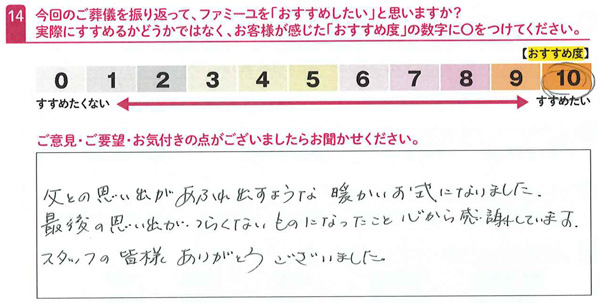 14 今回のご葬儀を振り返って、ファミーユを「おすすめしたい」と思いますか？
実際にすすめるかどうかではなく、お客様が感じた「おすすめ度」の数字に〇をつけてください。
【おすすめ度】
0 1 2 3 4 5 6 7 8 9 10
すすめたくない すすめたい
ご意見・ご要望・お気付きの点がございましたらお聞かせください。
父との思い出があふれ出すような 暖かいお式になりました.
最後の思い出が、つらくないものになったこと 心から感謝しています.
スタッフの皆様 ありがとう ございました。